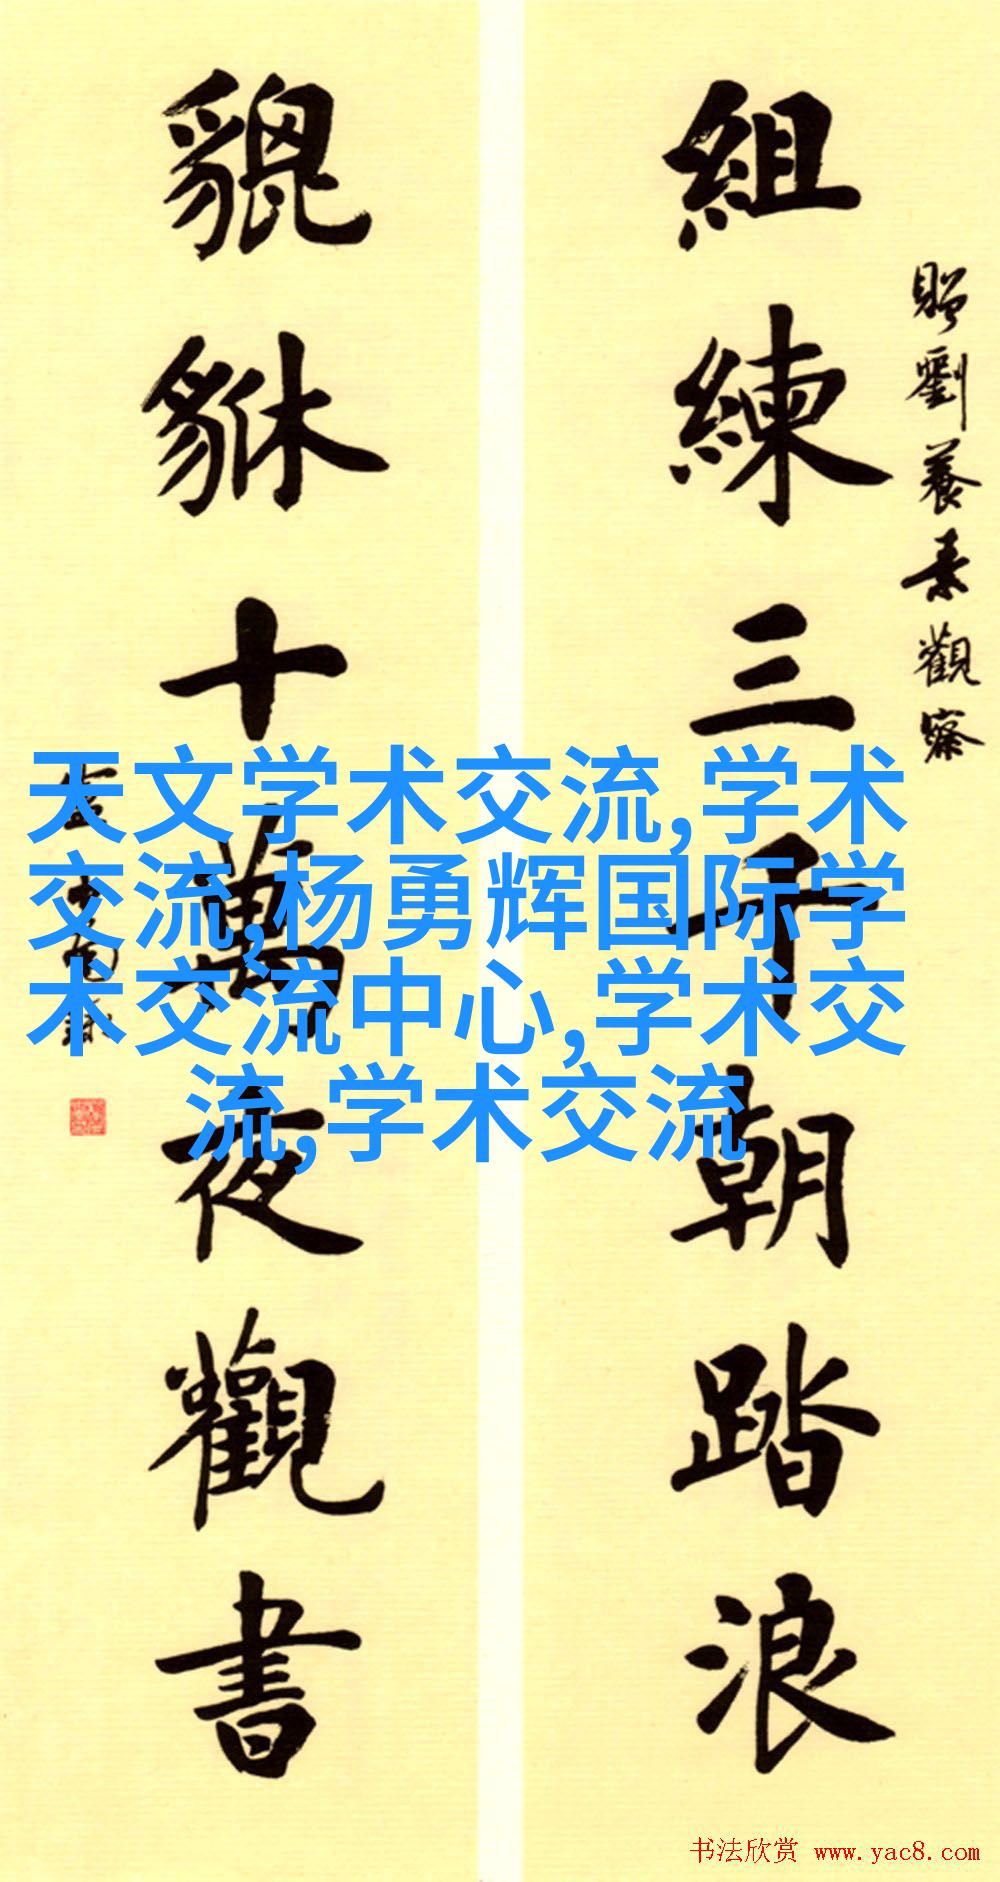 組練三千朝踏浪
貔貅十萬夜觀書
贈劉養素觀察
天文学术交流,学术
交流,杨勇辉国际学
术交流中心,学术交
流,学术交流
书法欣赏 www.yac8.com